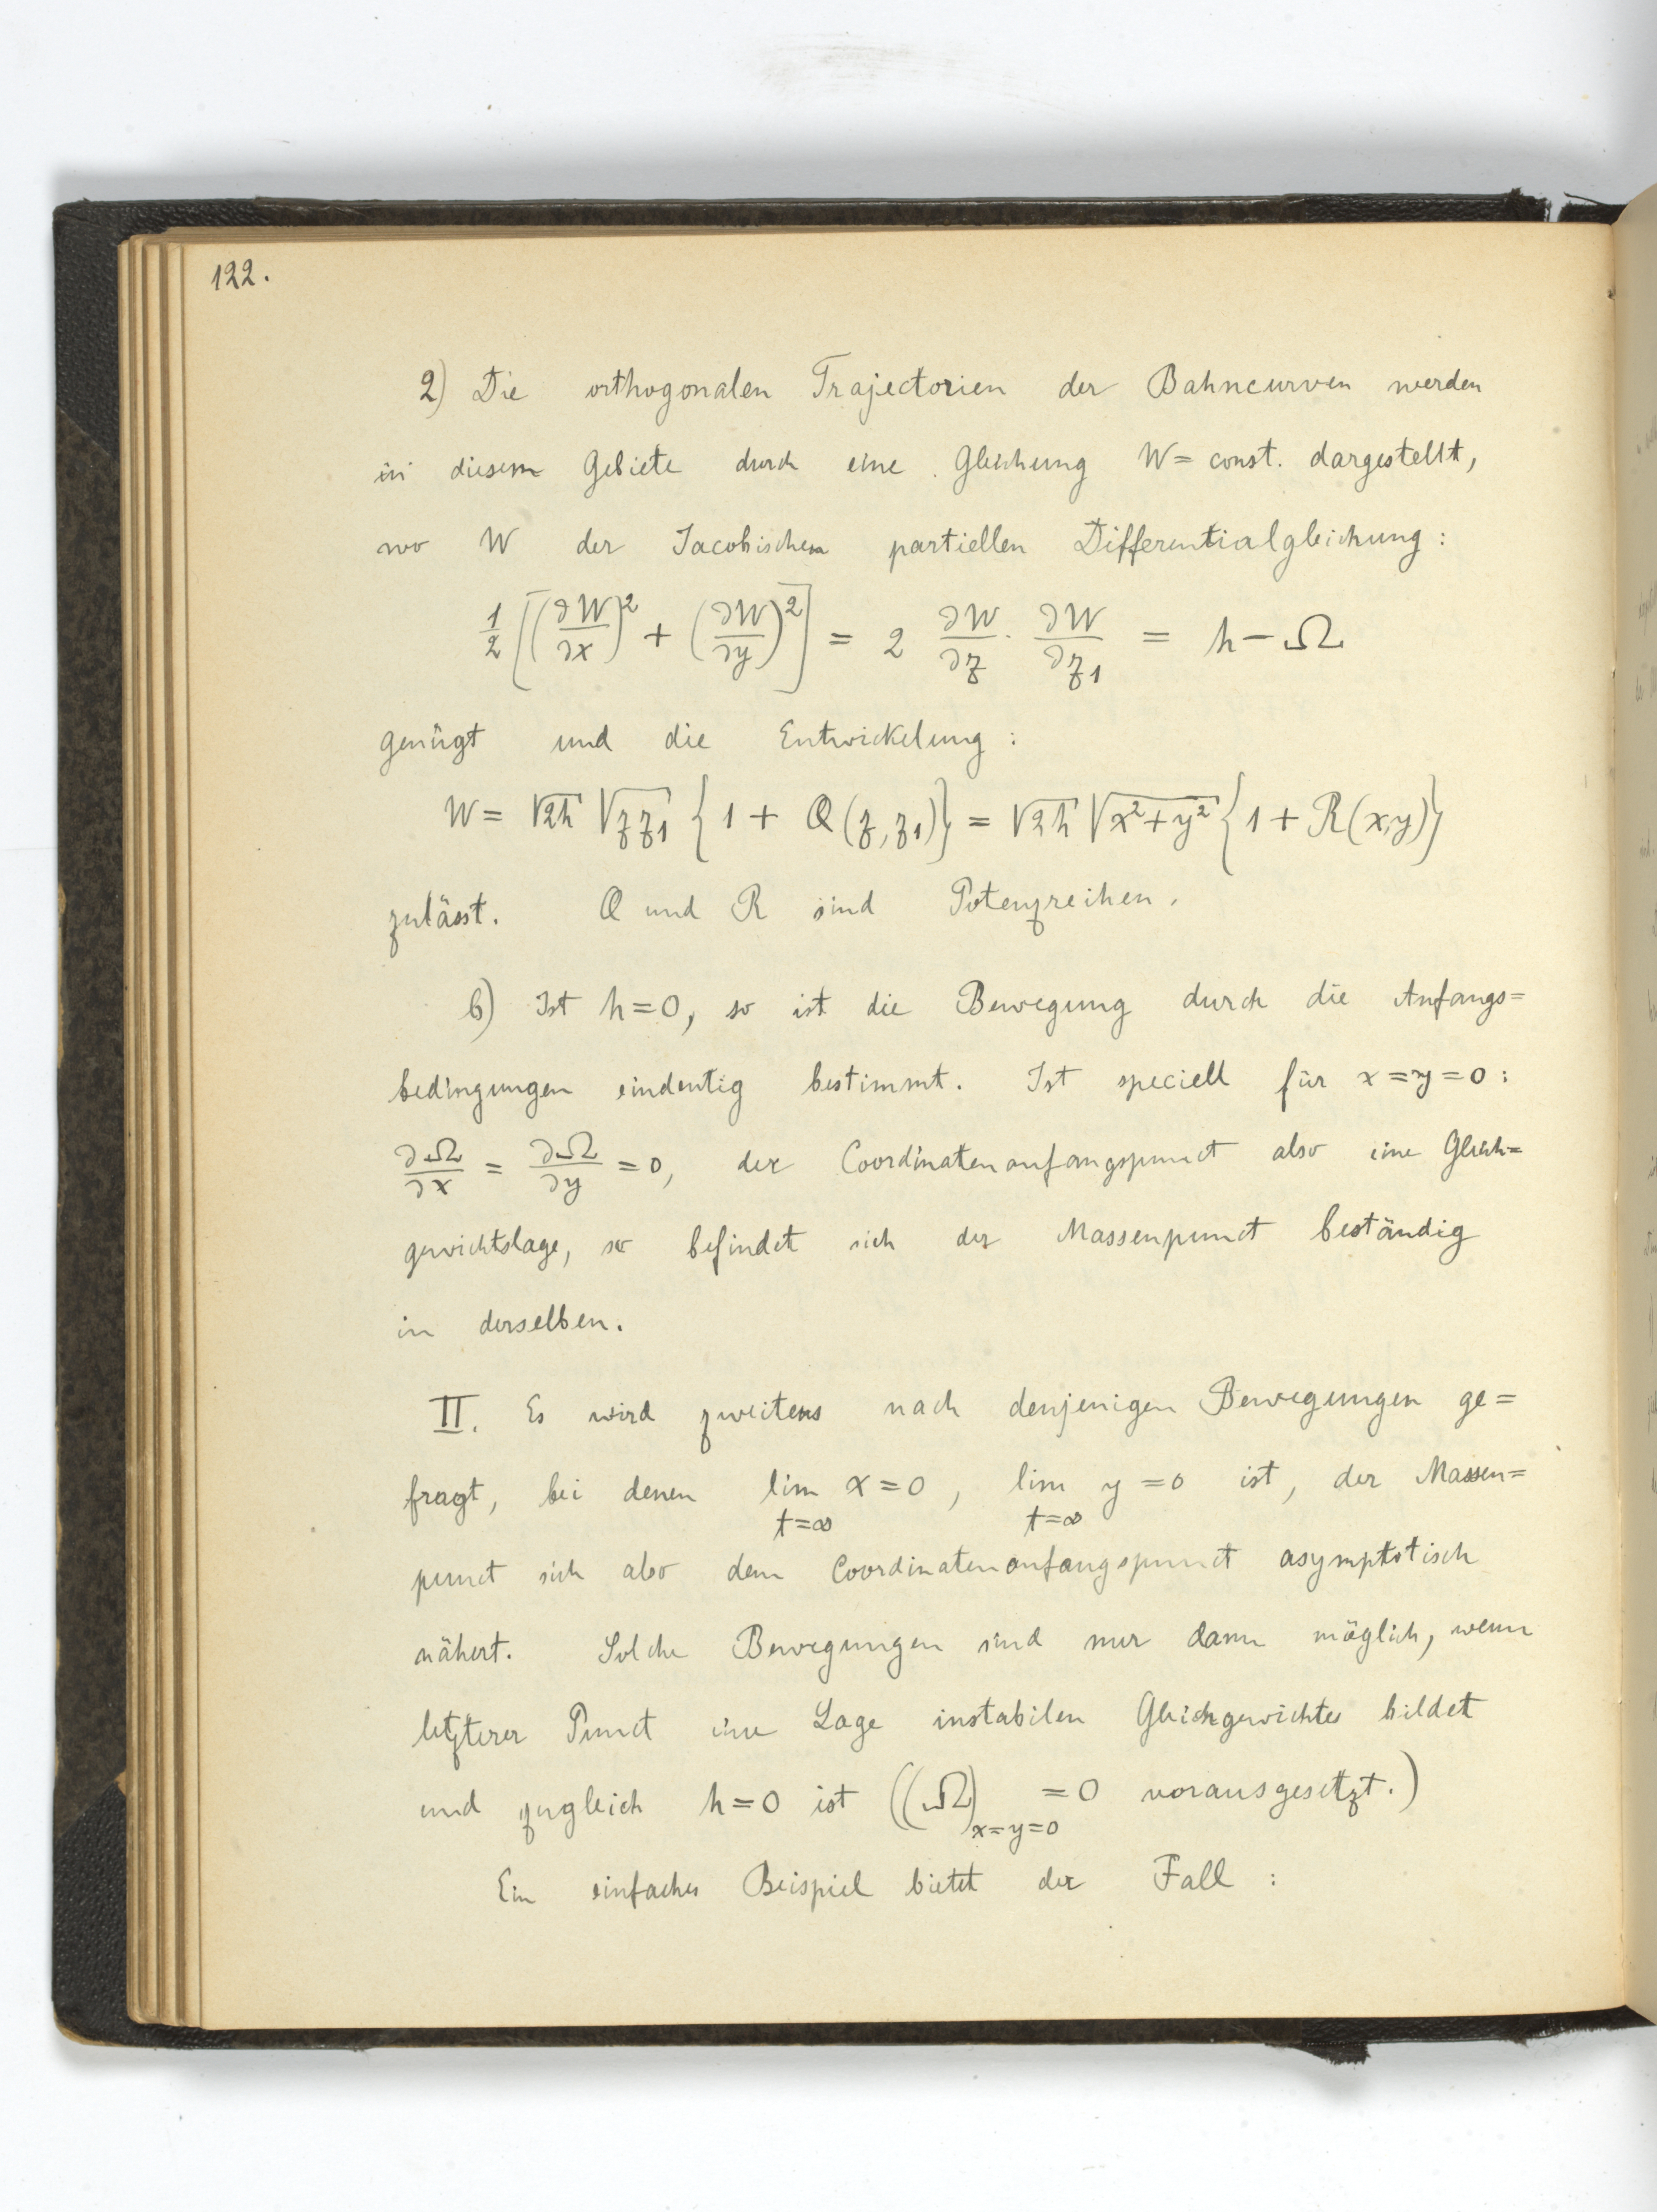 122.
2) Die orthogonalen Trajectorien der Bahncurven werden
in diesem Gebiete durch eine Gleichung W = const. dargestellt,
wo W der Jacobischen partiellen Differentialgleichung:
1/2 [(∂W/∂x)² + (∂W/∂y)²] = 2 ∂W/∂z · ∂W/∂z₁ = h − Ω
genügt und die Entwickelung:
W = √2h √zz₁ {1 + Q(z, z₁)} = √2h √x²+y² {1 + R(x,y)}
zulässt. Q und R sind Potenzreihen.
b) Ist h=0, so ist die Bewegung durch die Anfangs=
bedingungen eindeutig bestimmt. Ist speciell für x=y=0:
∂Ω/∂x = ∂Ω/∂y = 0, der Coordinatenanfangspunct also eine Gleich=
gewichtslage, so befindet sich der Massenpunct beständig
in derselben.
II. Es wird zweitens nach denjenigen Bewegungen ge=
fragt, bei denen lim x=0, lim y=0 ist, der Massen=
t=∞ t=∞
punct sich also dem Coordinatenanfangspunct asymptotisch
nähert. Solche Bewegungen sind nur dann möglich, wenn
letzterer Punct eine Lage instabilen Gleichgewichtes bildet
und zugleich h=0 ist ((Ω)x=y=0 =0 vorausgesetzt.)
Ein einfaches Beispiel bietet der Fall :